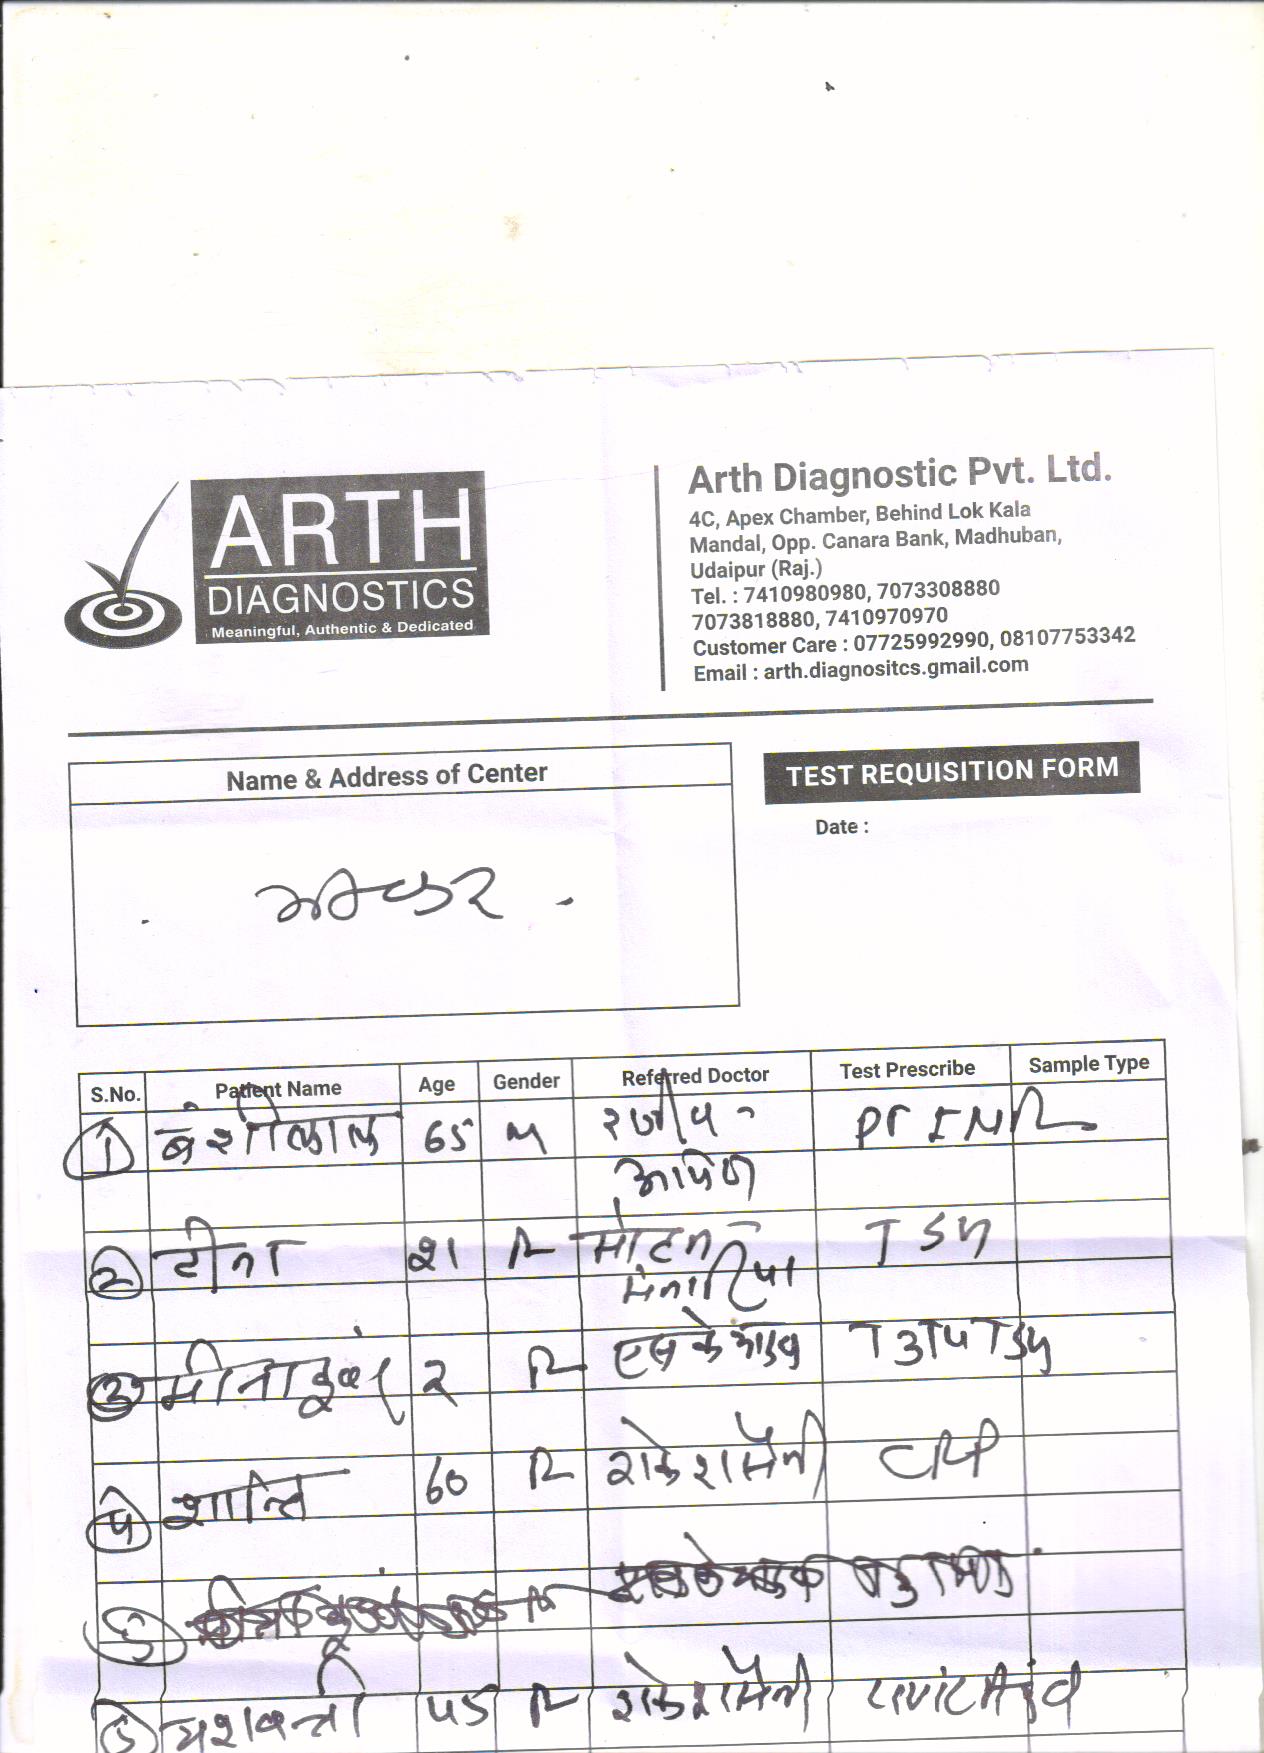 ARTH
DIAGNOSTICS
Meaningful, Authentic & Dedicated
Arth Diagnostic Pvt. Ltd.
4C, Apex Chamber, Behind Lok Kala
Mandal, Opp. Canara Bank, Madhuban,
Udaipur (Raj.)
Tel. : 7410980980, 7073308880
7073818880, 7410970970
Customer Care : 07725992990, 08107753342
Email : arth.diagnositcs.gmail.com
Name & Address of Center
TEST REQUISITION FORM
Date :
S.No. Patient Name Age Gender Referred Doctor Test Prescribe Sample Type
1 बंशीलाल 65 M PT INR
2 टीना 21 मोहन
मेनारिया
3 2 एस के T3 T4 TSH
4 शान्ति 60 राकेश सैनी CRP
5
5 यशवन्ती 45 राकेश सैनी